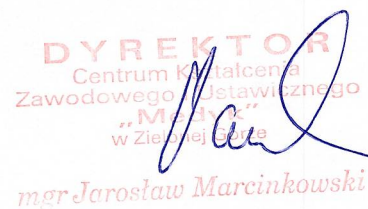 DYREKTOR
Centrum Kształcenia
Zawodowego i Ustawicznego
„Medyk”
w Zielonej Górze
mgr Jarosław Marcinkowski